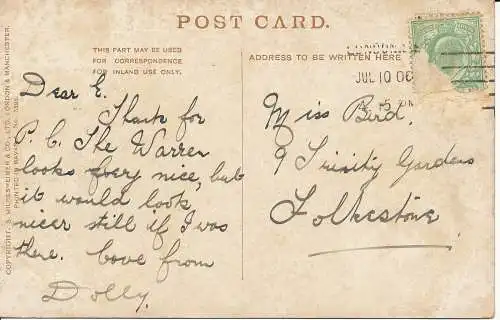 POST CARD.
THIS PART MAY BE USED
FOR CORRESPONDENCE
FOR INLAND USE ONLY.
ADDRESS TO BE WRITTEN HERE
LONDON
JUL 10 06
Dear E.
Thank for
P. C. The Warren
looks very nice, but
it would look
nicer still if I was
there. Love from
Dolly.
Miss Bird,
9 Trinity Gardens
Folkestone
COPYRIGHT. S. HILDESHEIMER & CO., LTD. LONDON & MANCHESTER.
PRINTED IN